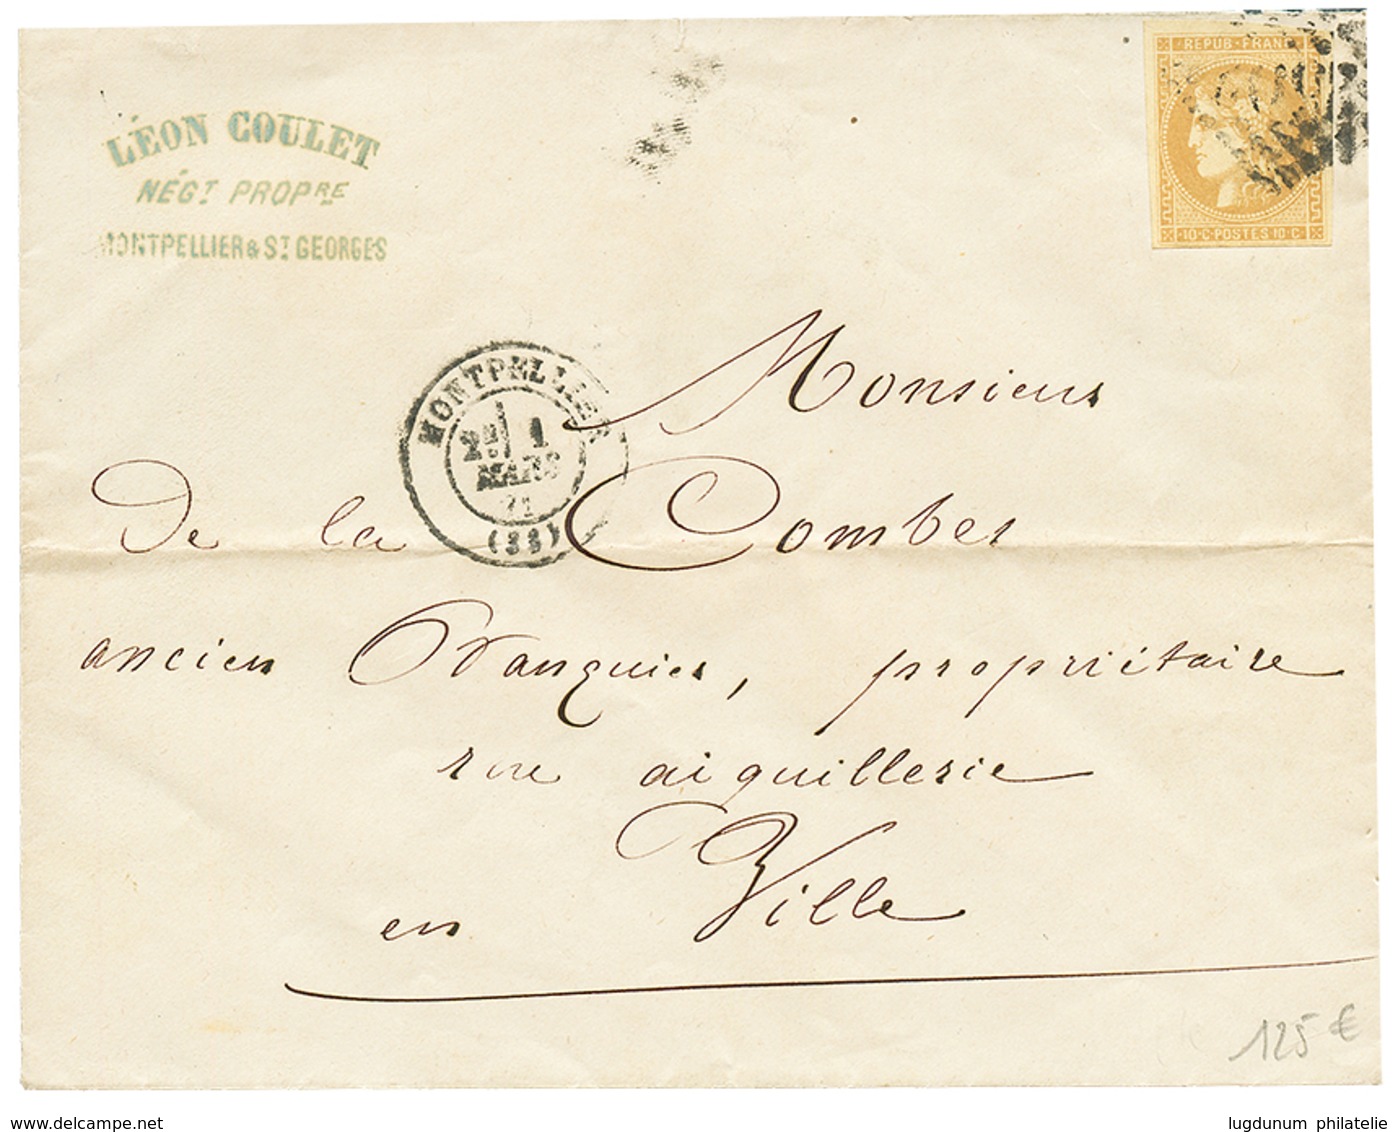 LÉON COULET
NÉGT PROPRE
MONTPELLIER & ST GEORGES
REPUB·FRANC
10·C·POSTES 10·C
MONTPELLIER
2E 1
MARS
71
(33)
Monsieur
De la Combes
ancien Banquier, propriétaire
rue aiguillerie
en Ville
125 €
www.delcampe.net
lugdunum philatelie